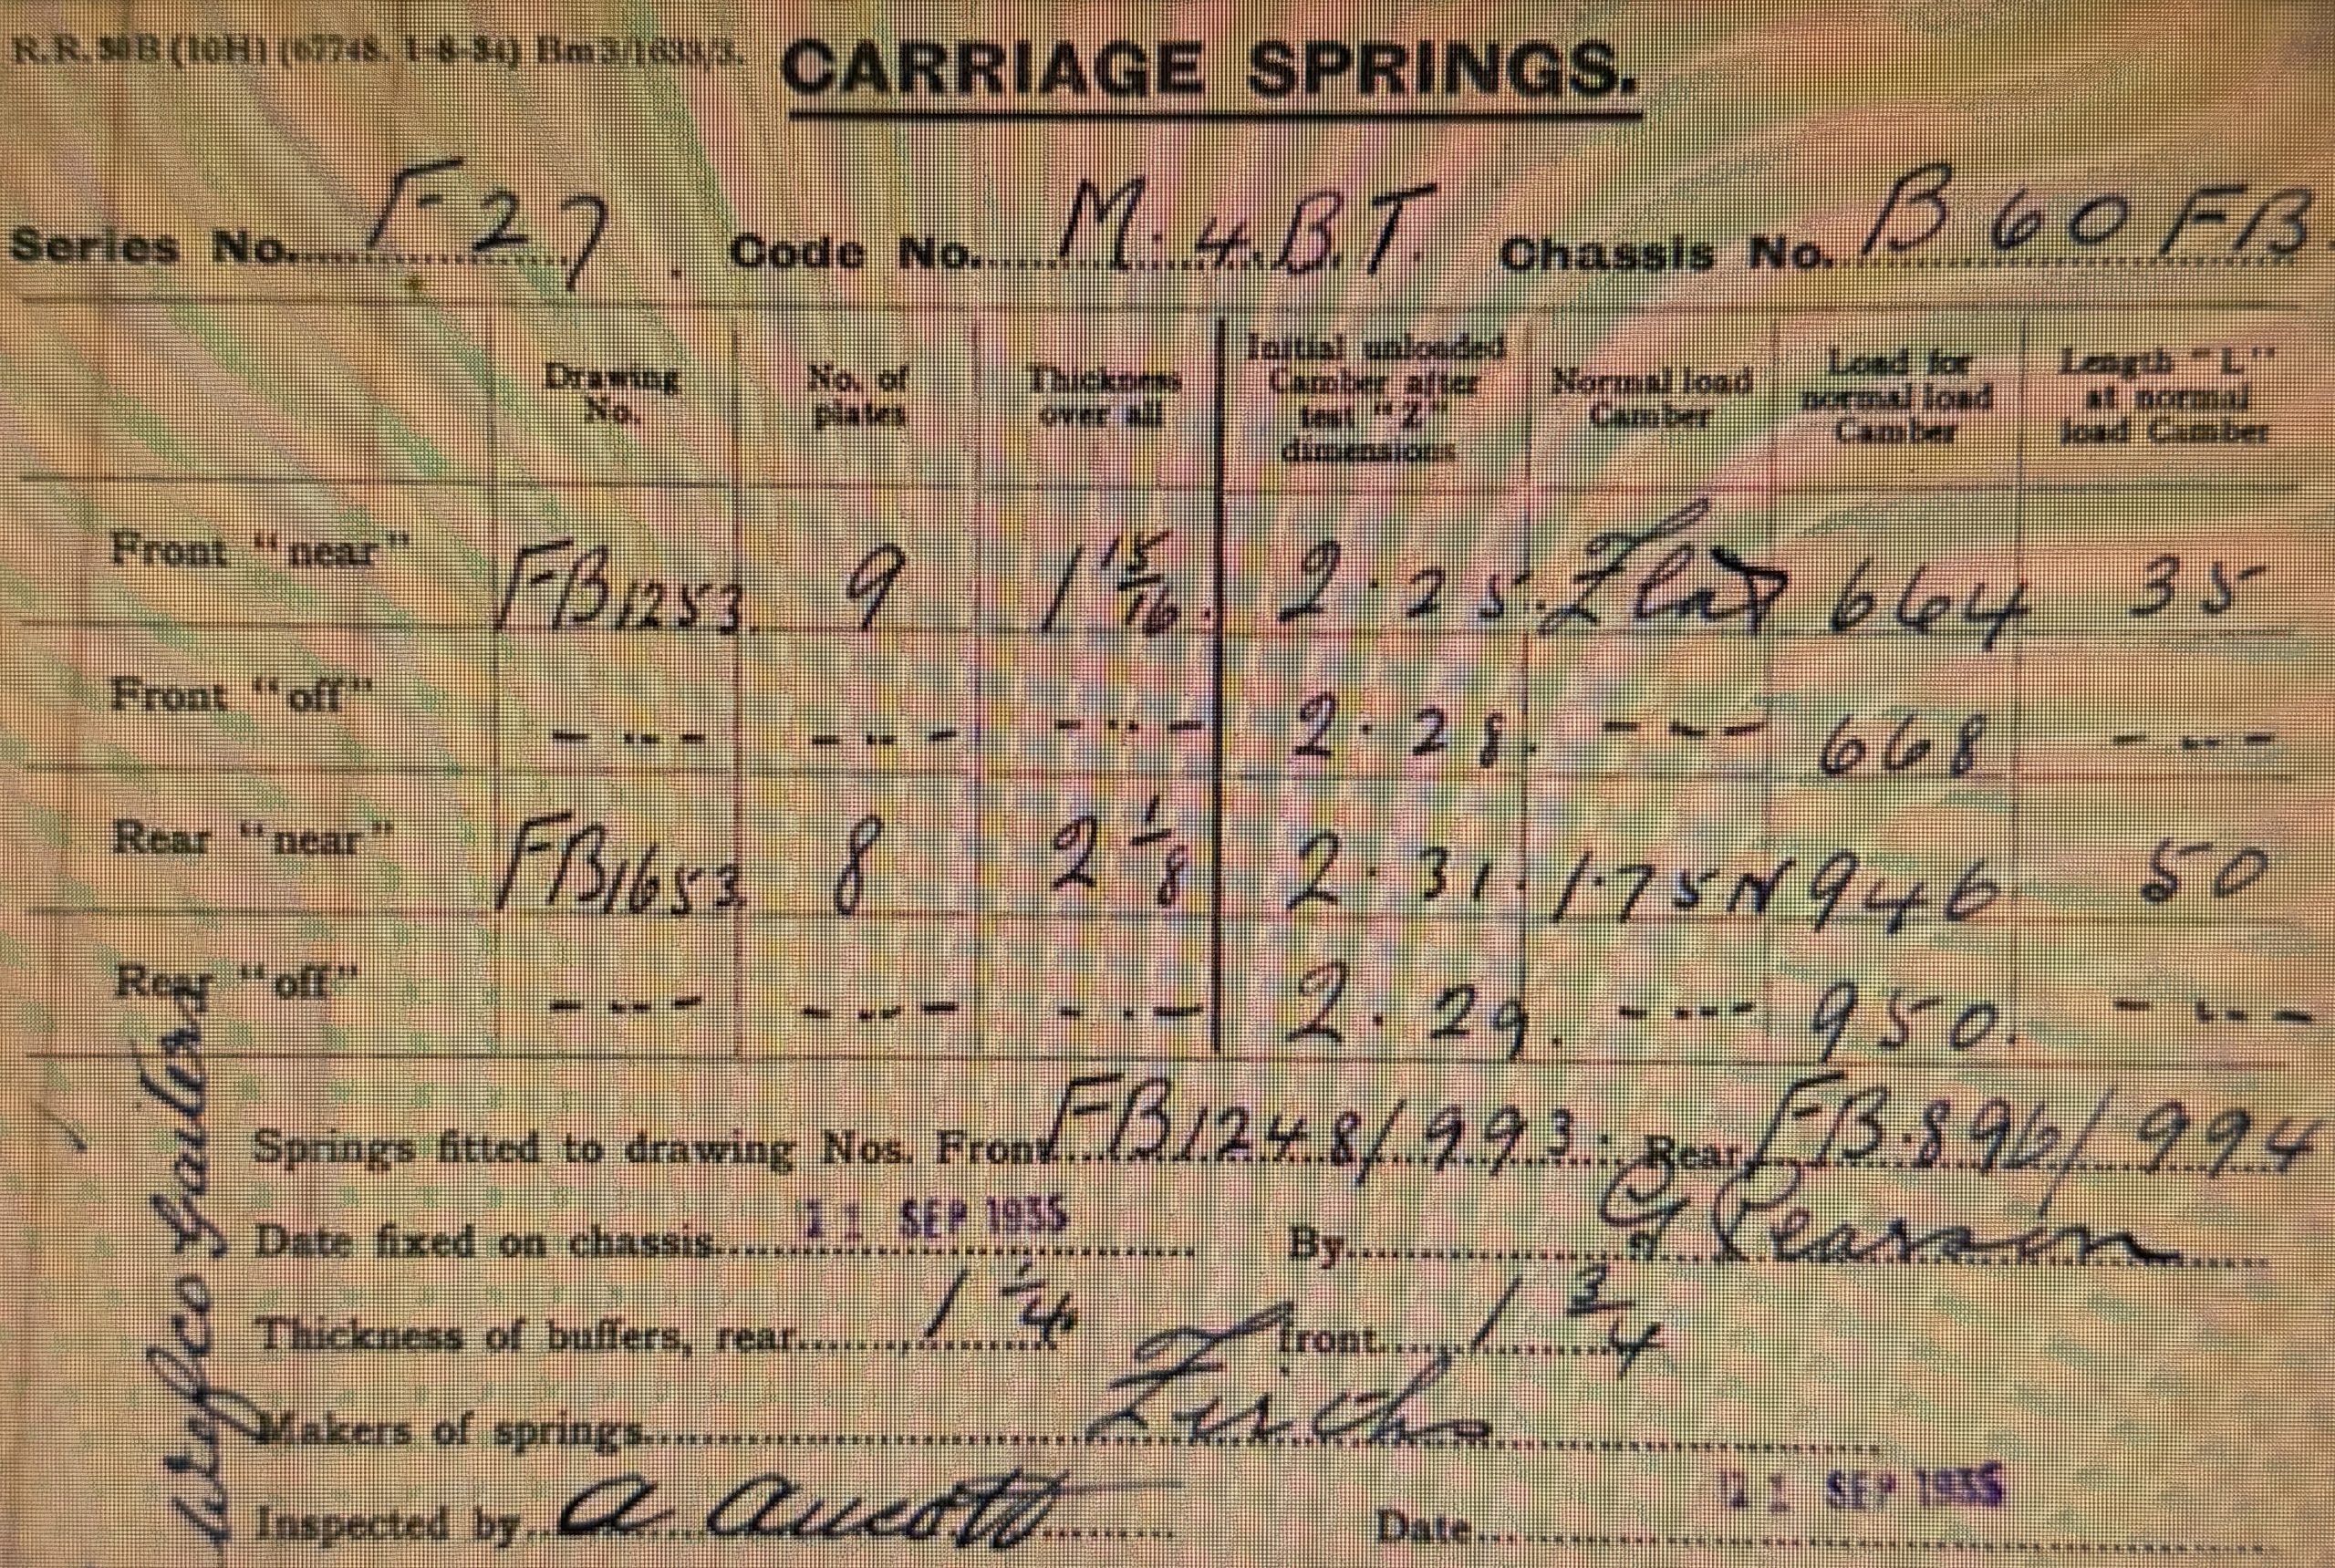 R.R. 30B (10H) (67748. 1-8-34) Bm 3/1633/3.
CARRIAGE SPRINGS.
Series No. F27. Code No. M.4.B.T. Chassis No. B60FB.
Drawing No. No. of plates Thickness over all Initial unloaded Camber after test "Z" dimensions Normal load Camber Load for normal load Camber Length "L" at normal load Camber
Front "near" FB1253. 9 1 15/16. 2.25. Flat 664 35
Front "off" - .. - - .. - - .. - 2.28. - - - 668 - .. -
Rear "near" FB1653 8 2 1/8 2.31. 1.75N 946 50
Rear "off" - .. - - .. - - .. - 2.29. - .. - 950. - .. -
Springs fitted to drawing Nos. Front FB1248/993. Rear FB.896/994
Date fixed on chassis 11 SEP 1935 By G Pearson
Thickness of buffers, rear 1 1/4 front 1 3/4
Makers of springs Firths
Inspected by A Aucott Date SEP 1935
Wefco Gaiters